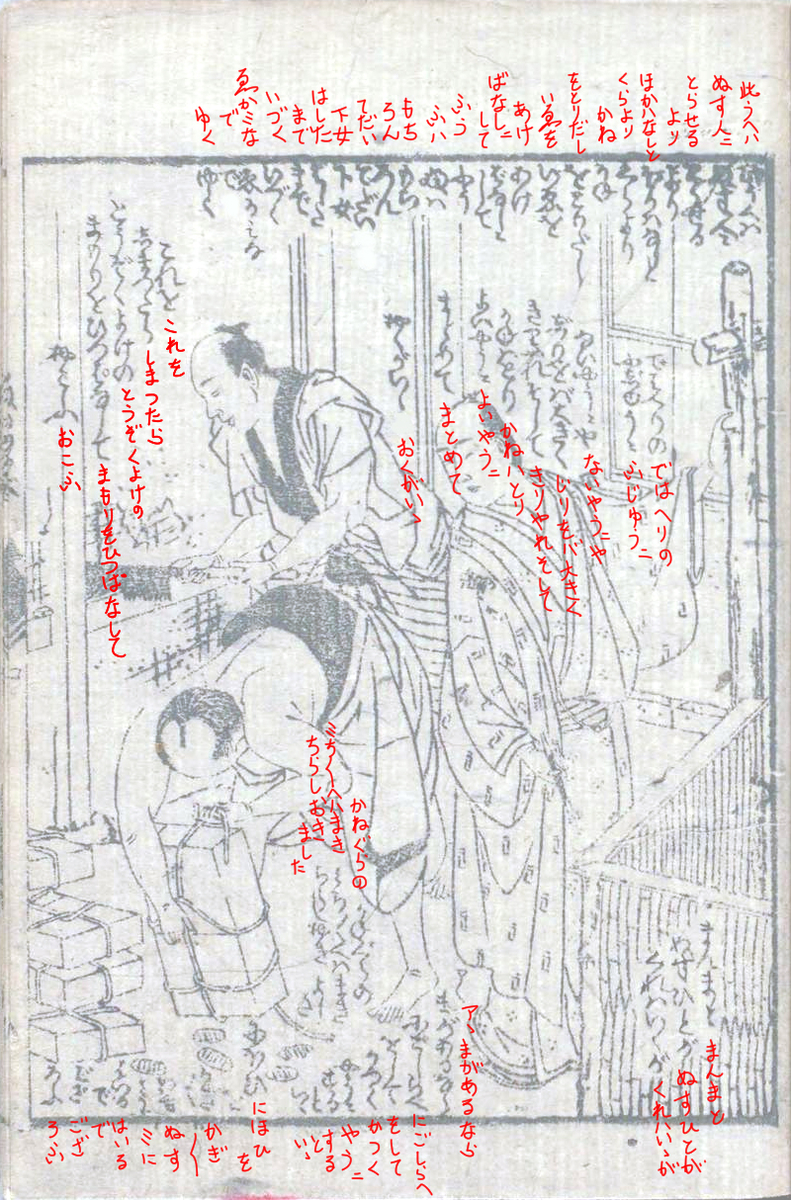 此うへハ
ぬす人ニ
とらせる
より
ほかハなしと
くらより
かね
をとりだし
いゑを
あけ
ばなしニ
して
ふう
ふハ
もち
ろん
てだい
下女
はした
まで
いづく
ゑかミな
で
ゆく
ではへりの
ふじゆうニ
ないやうニや
じりをバ大きく
きりやれそして
かねハとり
よいやうニ
まとめて
おくがいゝ
これを
しまつたら
とうぞくよけの
まもりをひつぱなして
おこふ
かねぐらの
ミち〳〵へハまき
ちらしおき
ました
まんまと
ぬすひとが
くれハいゝが
アヽまがあるなら
にごしらへ
をして
かつく
やうニ
する
と
いゝ
にほひ
を
かぎ
〳〵
ぬす
ミに
はいる
で
ござ
ろふ